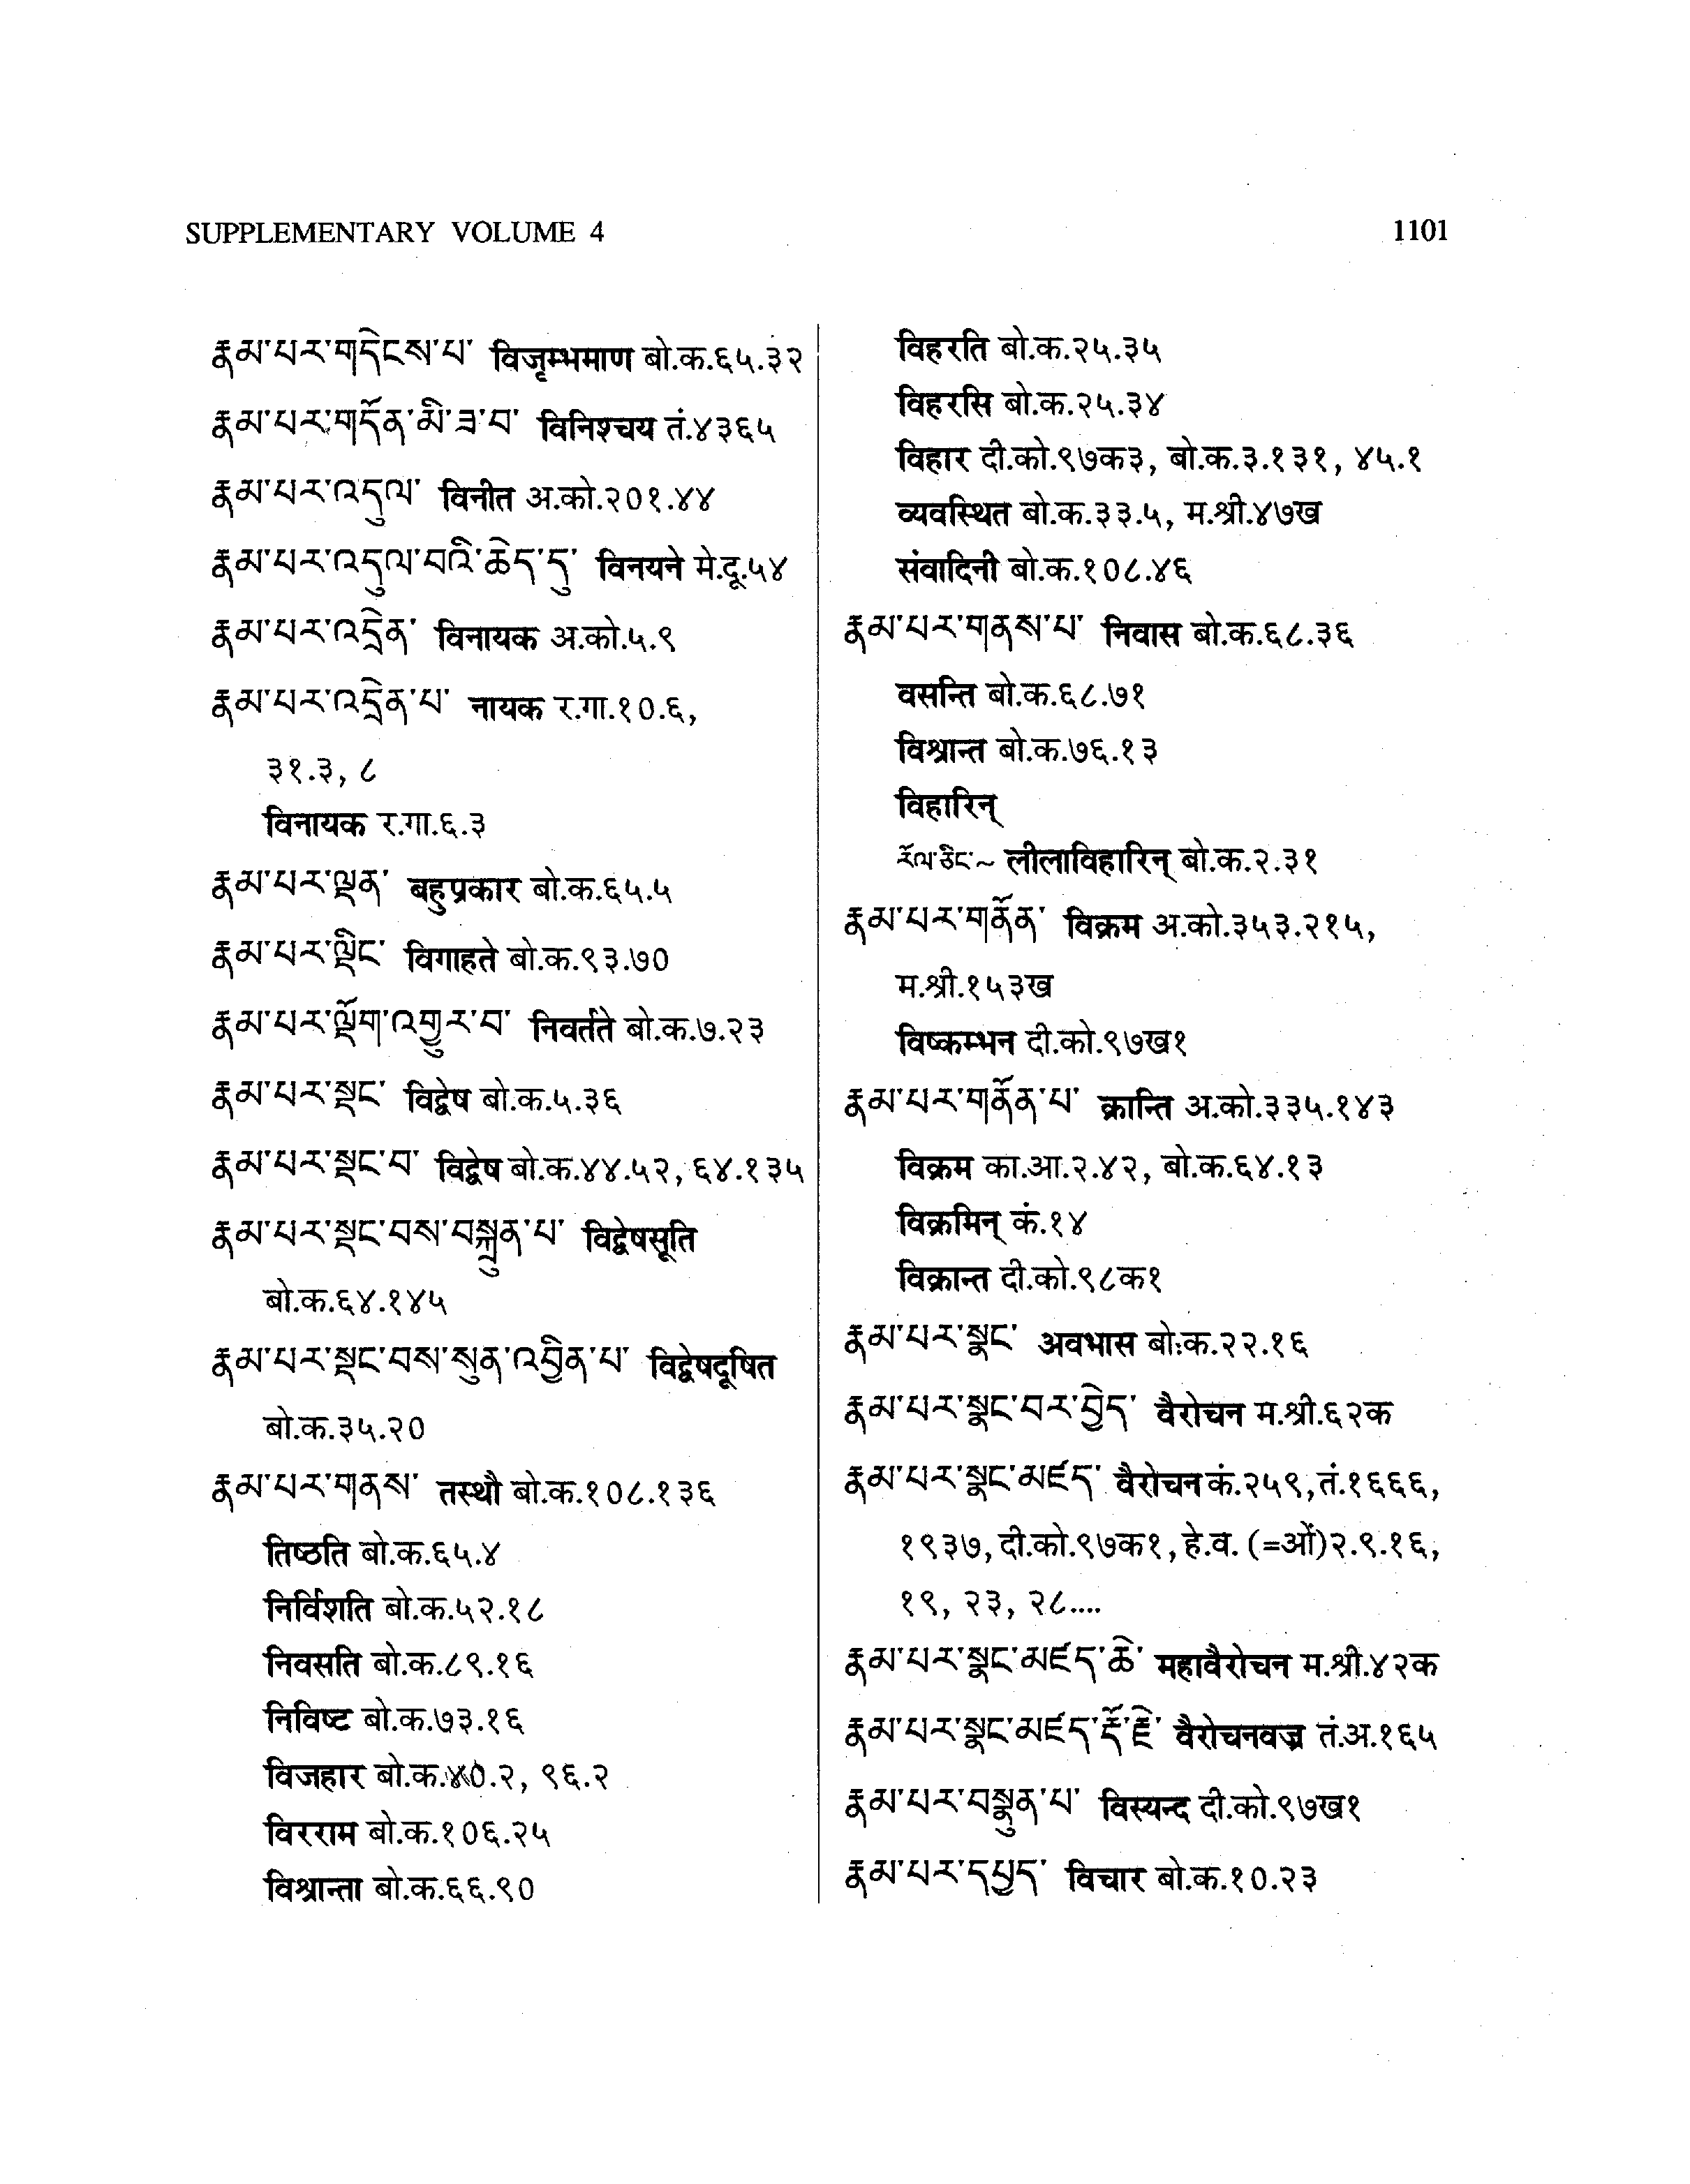 SUPPLEMENTARY VOLUME 4
1101
རྣམ་པར་གདེངས་པ་ विजृम्भमाण बो.क.६५.३२
རྣམ་པར་གདོན་མི་ཟ་བ་ विनिश्चय तं.४३६५
རྣམ་པར་འདུལ་ विनीत अ.को.२०१.४४
རྣམ་པར་འདུལ་བའི་ཆེད་དུ་ विनयने मे.दू.५४
རྣམ་པར་འདྲེན་ विनायक अ.को.५.९
རྣམ་པར་འདྲེན་པ་ नायक र.गा.१०.६,
३१.३, ८
विनायक र.गा.६.३
རྣམ་པར་ལྡན་ बहुप्रकार बो.क.६५.५
རྣམ་པར་ལྡིང་ विगाहते बो.क.९३.७०
རྣམ་པར་ལྡོག་འགྱུར་བ་ निवर्तते बो.क.७.२३
རྣམ་པར་སྡང་ विद्वेष बो.क.५.३६
རྣམ་པར་སྡང་བ་ विद्वेष बो.क.४४.५२, ६४.१३५
རྣམ་པར་སྡང་བས་བསྐྲུན་པ་ विद्वेषसूति
बो.क.६४.१४५
རྣམ་པར་སྡང་བས་སུན་འབྱིན་པ་ विद्वेषदूषित
बो.क.३५.२०
རྣམ་པར་གནས་ तस्थौ बो.क.१०८.१३६
तिष्ठति बो.क.६५.४
निर्विशति बो.क.५२.१८
निवसति बो.क.८९.१६
निविष्ट बो.क.७३.१६
विजहार बो.क.४०.२, ९६.२
विरराम बो.क.१०६.२५
विश्रान्ता बो.क.६६.९०
विहरति बो.क.२५.३५
विहरसि बो.क.२५.३४
विहार दी.को.९७क३, बो.क.३.१३१, ४५.१
व्यवस्थित बो.क.३३.५, म.श्री.४७ख
संवादिनी बो.क.१०८.४६
རྣམ་པར་གནས་པ་ निवास बो.क.६८.३६
वसन्ति बो.क.६८.७१
विश्रान्त बो.क.७६.१३
विहारिन्
རོལ་ཅིང་~ लीलाविहारिन् बो.क.२.३१
རྣམ་པར་གནོན་ विक्रम अ.को.३५३.२१५,
म.श्री.१५३ख
विष्कम्भन दी.को.९७ख१
རྣམ་པར་གནོན་པ་ क्रान्ति अ.को.३३५.१४३
विक्रम का.आ.२.४२, बो.क.६४.१३
विक्रमिन् कं.१४
विक्रान्त दी.को.९८क१
རྣམ་པར་སྣང་ अवभास बो.क.२२.१६
རྣམ་པར་སྣང་བར་བྱེད་ वैरोचन म.श्री.६२क
རྣམ་པར་སྣང་མཛད་ वैरोचन कं.२५९, तं.१६६६,
१९३७, दी.को.९७क१, हे.व. (=ओं)२.९.१६,
१९, २३, २८....
རྣམ་པར་སྣང་མཛད་ཆེ་ महावैरोचन म.श्री.४२क
རྣམ་པར་སྣང་མཛད་རྡོ་རྗེ་ वैरोचनवज्र तं.अ.१६५
རྣམ་པར་བསྣུན་པ་ विस्यन्द दी.को.९७ख१
རྣམ་པར་དཔྱད་ विचार बो.क.१०.२३